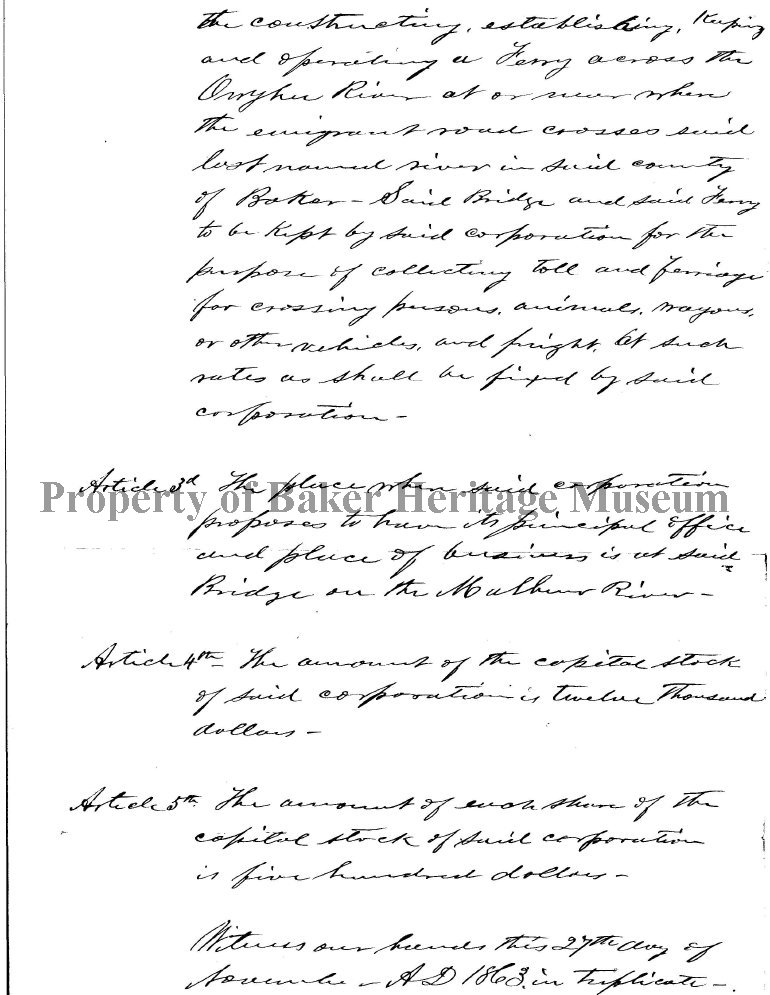 the constructing, establishing, Keeping
and operating a Ferry across the
Owyhee River at or near where
the emigrant road crosses said
last named river in said county
of Baker – Said Bridge and said Ferry
to be Kept by said corporation for the
purpose of collecting toll and ferriage
for crossing persons, animals, wagons,
or other vehicles, and freight, at such
rates as shall be fixed by said
corporation –
Article 3d The place where said corporation
Property of Baker Heritage Museum
proposes to have its principal office
and place of business is at said
Bridge on the Malheur River –
Article 4th – The amount of the capital stock
of said corporation is twelve Thousand
dollars –
Article 5th. The amount of each share of the
capital stock of said corporation
is five hundred dollars –
Witness our hands this 27th day of
November – A D 1863. in triplicate –